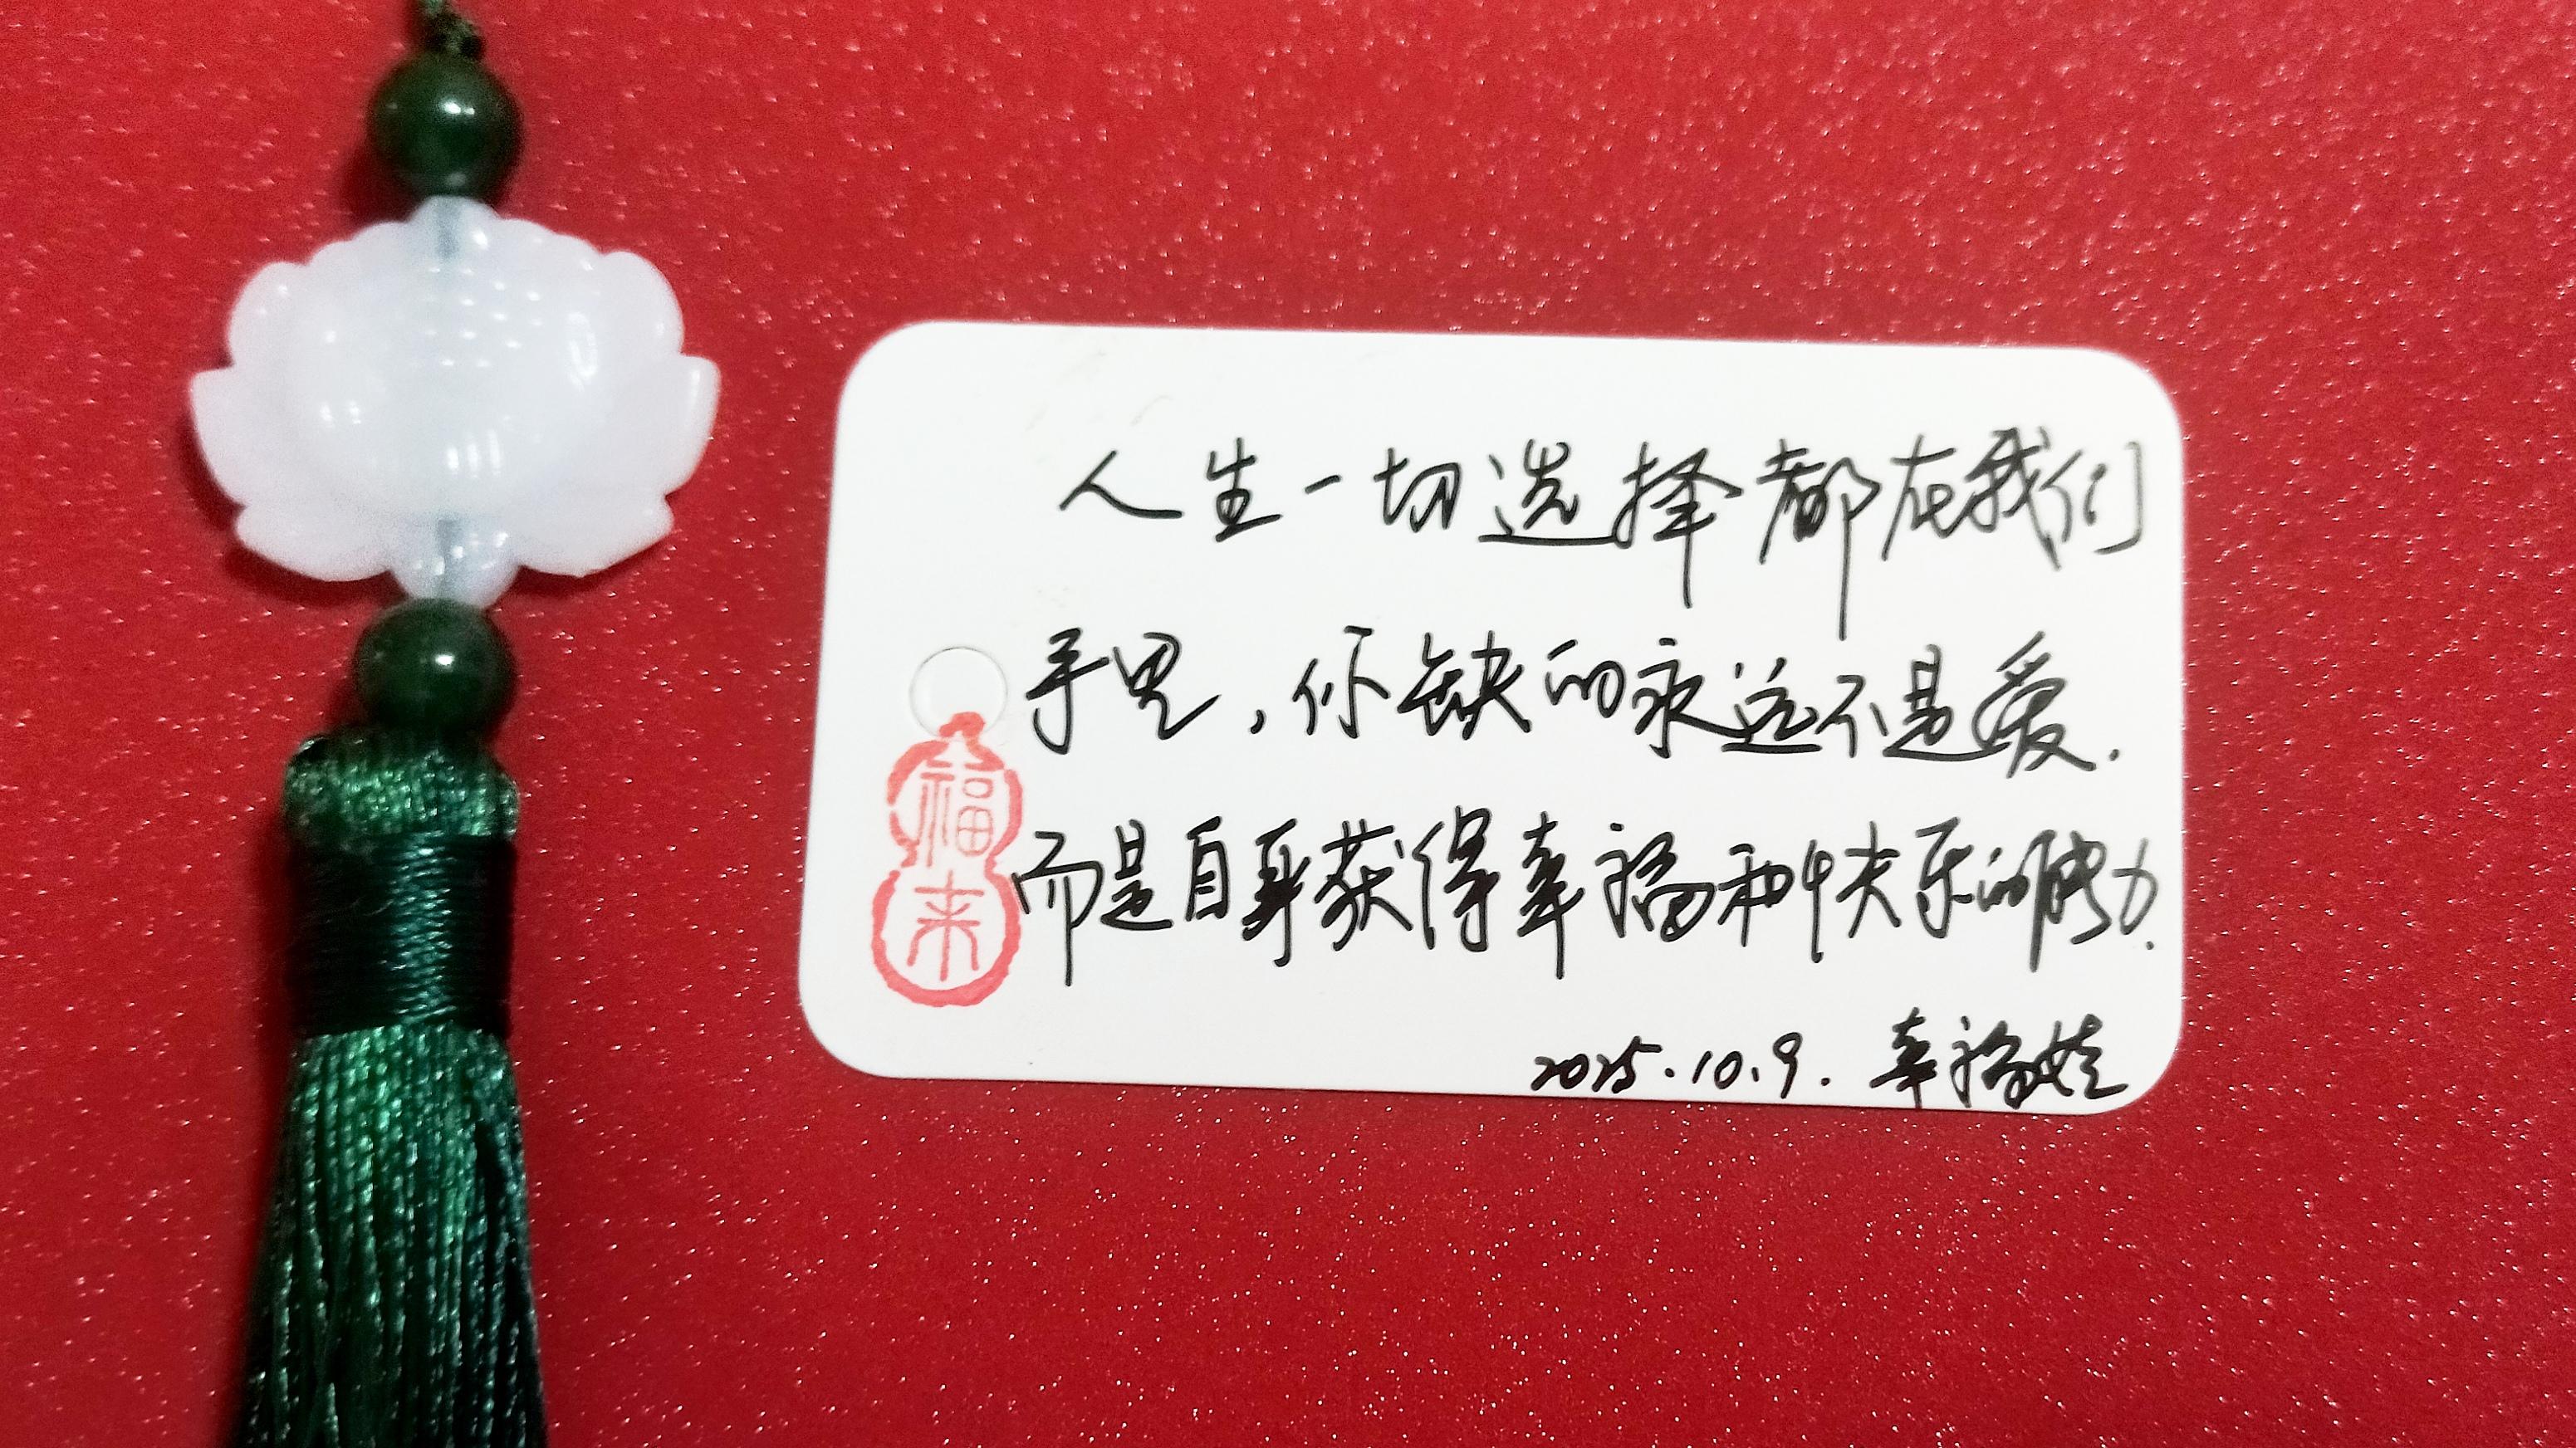 人生一切选择都在我们
手里,你缺的永远不是爱.
而是自身获得幸福和快乐的能力.
2025.10.9. 幸福娃
福来